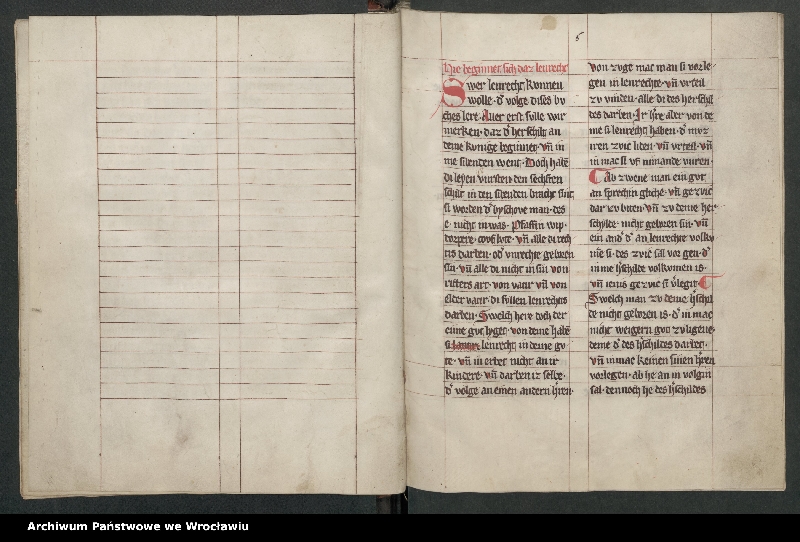 6
Hie beginnet sich daz lenrecht
Swer lenrecht kunnen
wolle · d' volge dises bu
ches lere · Aller erst sulle wir
merken · daz d' herschilt an
deme kunige beginnet · vn̄ in
me sibenden went · Doch habē
di leyen vursten den sechsten
schilt in den sibenden bracht sint
si worden d' byschove man · des
e · nicht inwas · Pfaffin wip ·
dorpere · couflute · vn̄ alle di rech
tis darben · od' vnrechte geboren
sin · vn̄ alle di nicht in sin von
ritters art · von vatir vn̄ von
elder vatir · di sullen lenrechtis
darben · Swelch herre doch der
eime gut liget · von deme habē
si lenrecht in deme gu
te · vn̄ in erbet nicht an ir
kindere · vn̄ darben ir selbe ·
d' volge an eimen andern h'ren ·
von zuge mac man si vorle
gen in lenrechte · vn̄ vrteil
zu vinden · alle di des herschil
des darben · Ir h're aber von de
me si lenrecht haben · d' muz
iren zuic liden · vn̄ vrteil · vn̄
in mac si vf nimande vuren ·
Ab zwene man ein gut
an sprechin gliche · vn̄ gezuic
dar zu biten · vn̄ zu deme her
schilde · nicht geboren sin · vn̄
ein and' d' an lenrechte volku
me si · des zuic sal vor gen · d'
in me h'schilde volkumen is ·
vn̄ ienis gezuic si v'legit
Swelch man zu deme h'schil
de nicht geboren is · d' in mac
nicht weigern gut zu ligene ·
deme d' des h'schildes darbet ·
vn̄ in mac keinen sinen h'ren
vorlegen · ab he an in volgin
sal · dennoch he des h'schildes
Archiwum Państwowe we Wrocławiu